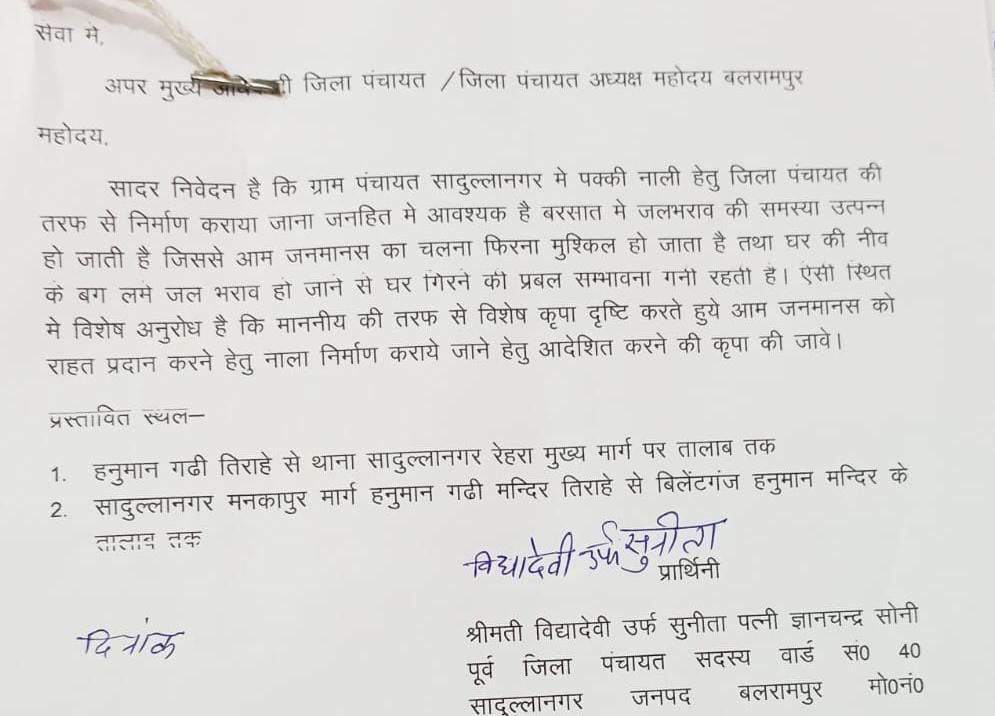 सेवा मे,
अपर मुख्य जिला पंचायत /जिला पंचायत अध्यक्ष महोदय बलरामपुर
महोदय,
सादर निवेदन है कि ग्राम पंचायत सादुल्लानगर मे पक्की नाली हेतु जिला पंचायत की
तरफ से निर्माण कराया जाना जनहित मे आवश्यक है बरसात मे जलभराव की समस्या उत्पन्न
हो जाती है जिससे आम जनमानस का चलना फिरना मुश्किल हो जाता है तथा घर की नीव
के बग लमे जल भराव हो जाने से घर गिरने की प्रबल सम्भावना गनी रहती है। ऐसी स्थित
मे विशेष अनुरोध है कि माननीय की तरफ से विशेष कृपा दृष्टि करते हुये आम जनमानस को
राहत प्रदान करने हेतु नाला निर्माण कराये जाने हेतु आदेशित करने की कृपा की जावे।
प्रस्तावित स्थल–
1. हनुमान गढी तिराहे से थाना सादुल्लानगर रेहरा मुख्य मार्ग पर तालाब तक
2. सादुल्लानगर मनकापुर मार्ग हनुमान गढी मन्दिर तिराहे से बिलेंटगंज हनुमान मन्दिर के
तालाब तक
विद्यादेवी उर्फ सुनीता
प्रार्थिनी
दिनांक
श्रीमती विद्यादेवी उर्फ सुनीता पत्नी ज्ञानचन्द्र सोनी
पूर्व जिला पंचायत सदस्य वार्ड सं0 40
सादुल्लानगर जनपद बलरामपुर मो0नं0